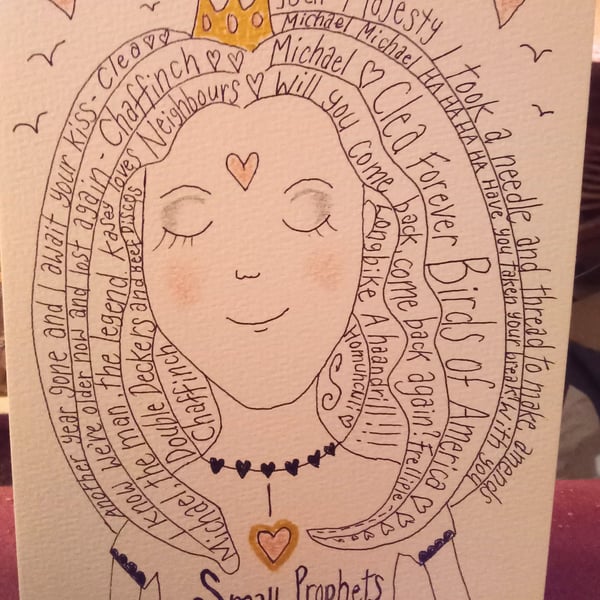 Another year gone and I await your kiss - Clea ♡♡
I know we're older now and lost again - Chaffinch ♡♡
Michael, the man, the legend Kasey loves Neighbours ♡
Double Deckers and Beef Discos
Chaffinch
Majesty I took a needle and thread to make amends
Michael Michael HA HA HA HA HA Have you taken your break with you
Michael ♡ Clea Forever Birds of America ♡♡
Will you come back, come back again
Longbike Ahaandrill!!!
Homunculi
I
Small Prophets